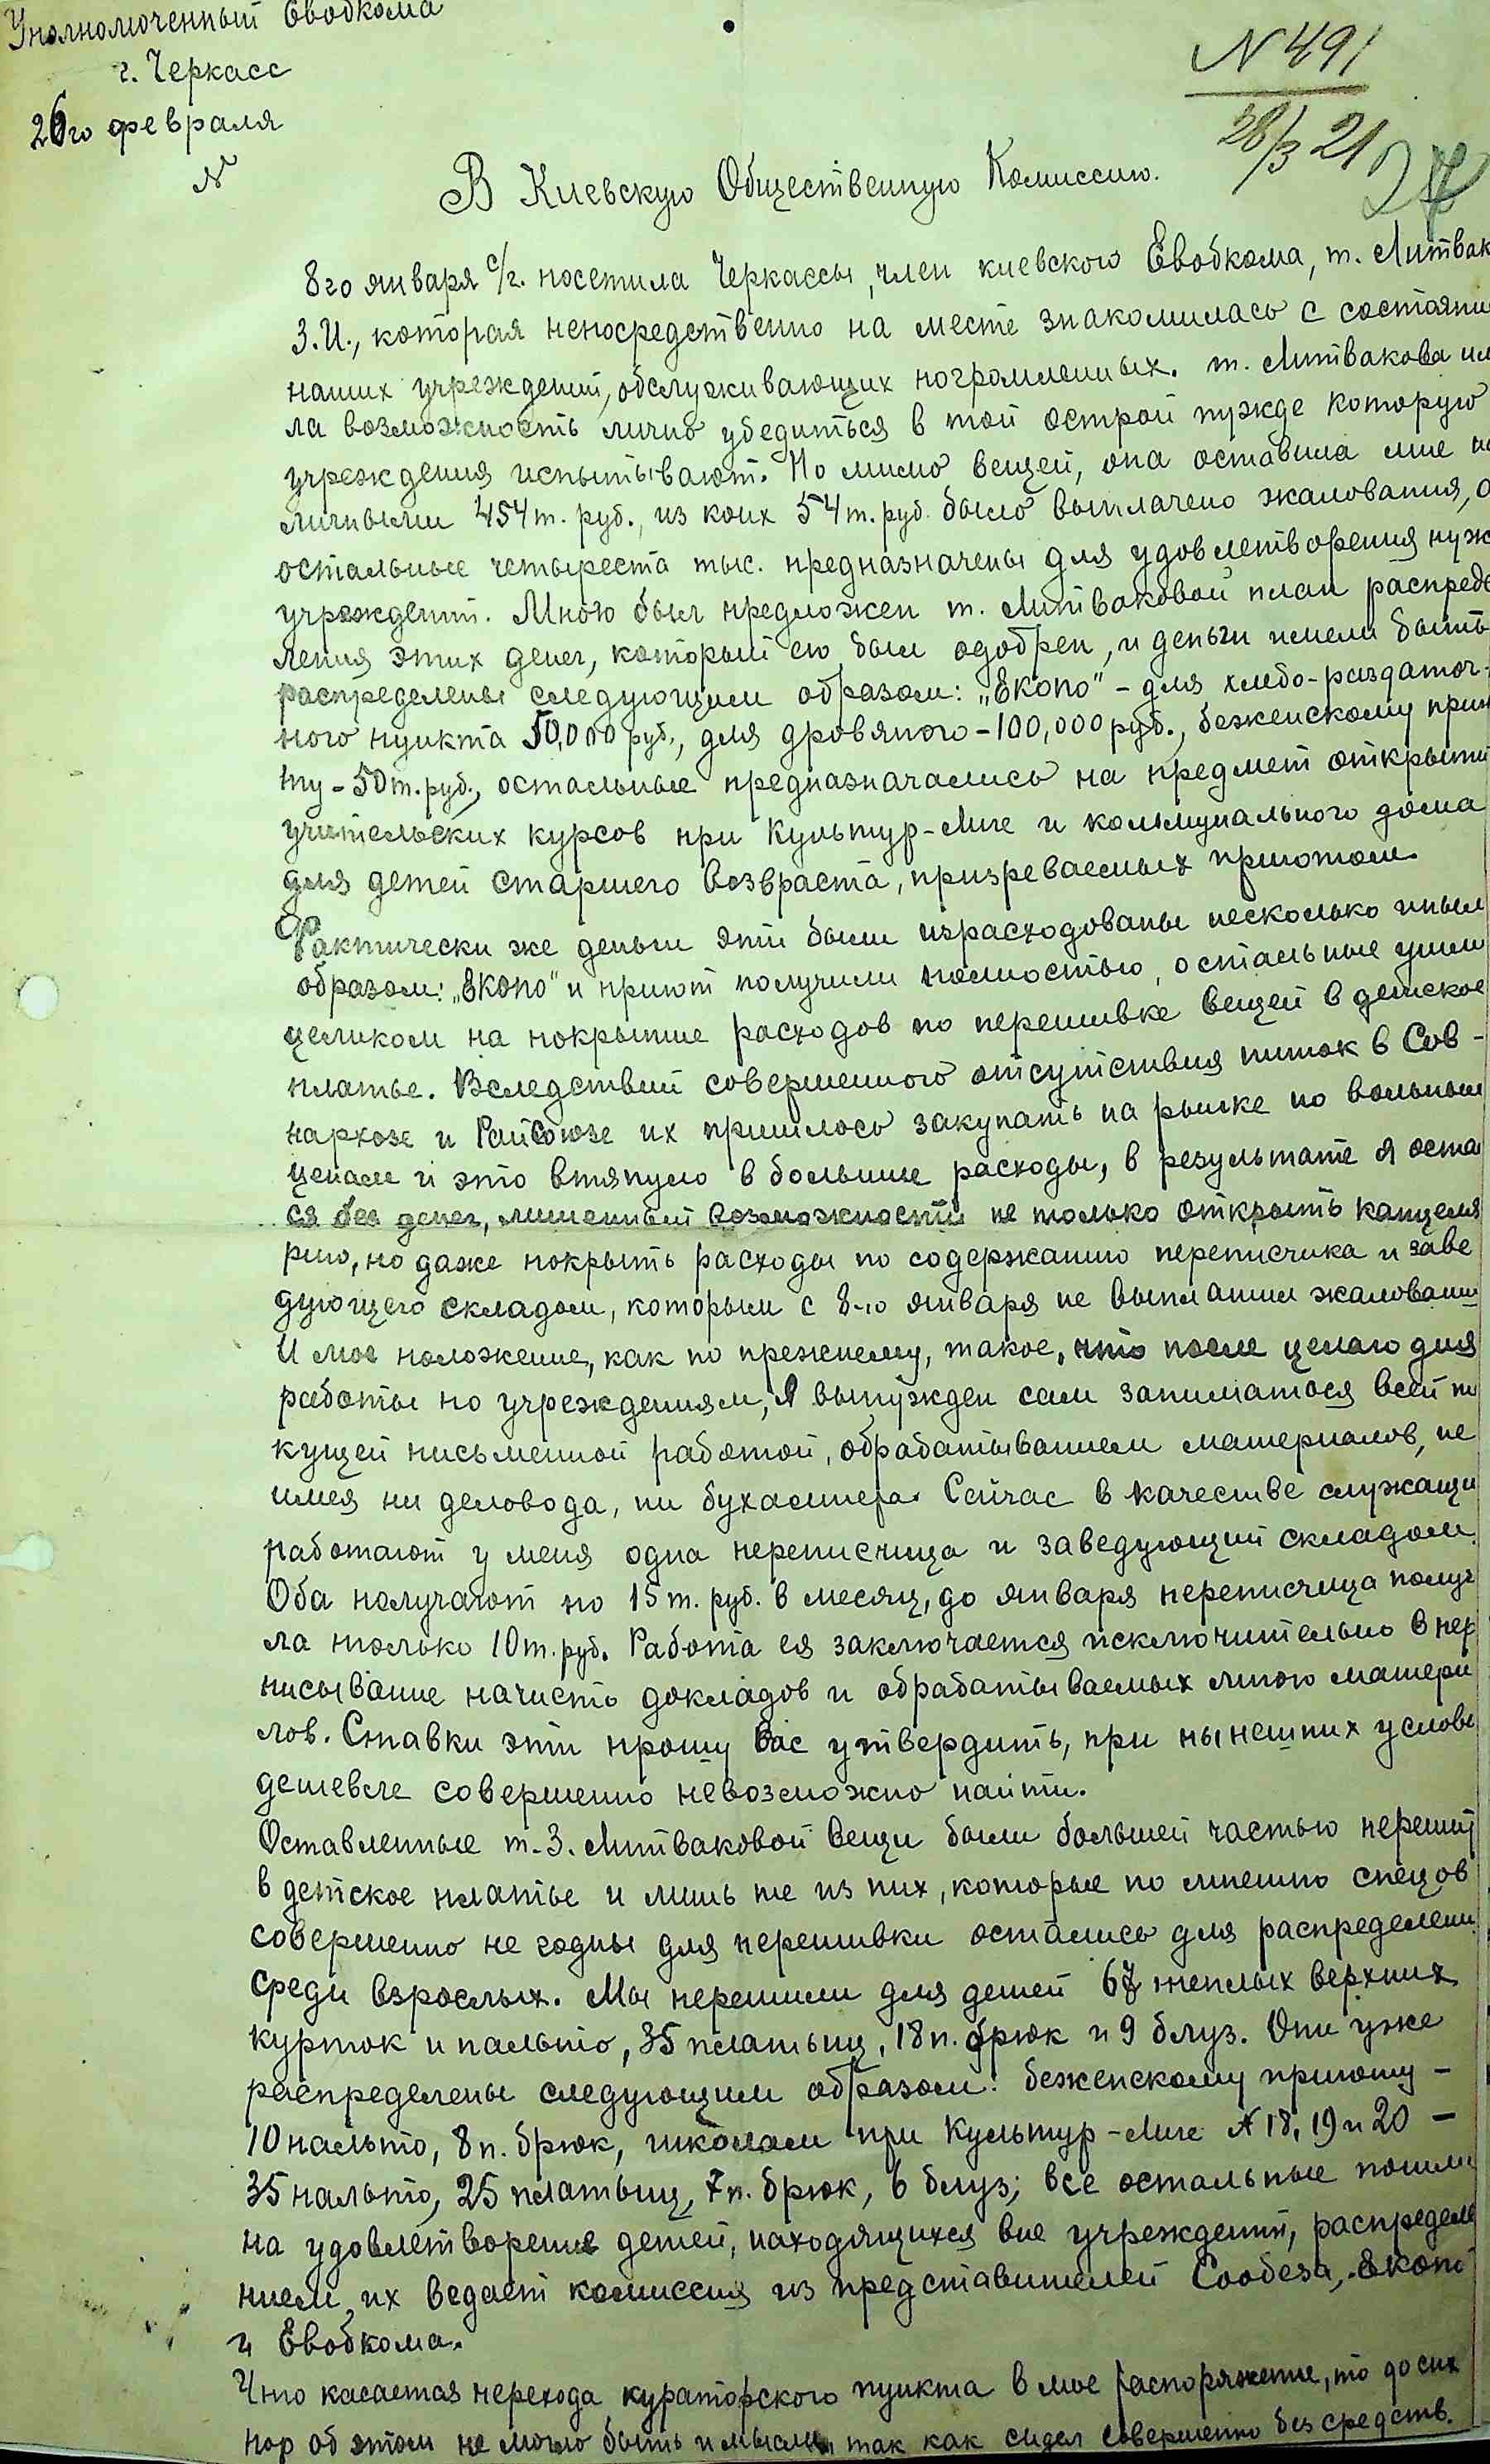 Уполномоченный Евобкома
г. Черкасс
26го февраля
N
N 491
28/3 21
27
В Киевскую Общественную Комиссию.
8го января с/г. посетила Черкассы, член киевского Евобкома, т. Литвак
З.И., которая непосредственно на месте знакомилась с состояни
наших учреждений, обслуживающих погромленных. т. Литвакова им
ла возможность лично убедиться в той острой нужде которую
учреждения испытывают. По мимо вещей, она оставила мне на
личными 454 т. руб., из коих 54 т. руб. было выплачено жалования, а
остальные четыреста тыс. предназначены для удовлетворения нуж
учреждений. Мною был предложен т. Литваковой план распреде
ления этих денег, который ею был одобрен, и деньги имели быть
распределены следующим образом: „Екопо" - для хлебо-раздаточ-
ного пункта 50,000 руб., для дровяного - 100,000 руб., беженскому прию
ту - 50 т. руб., остальные предназначались на предмет открыти
учительских курсов при Культур-Лиге и коммунального дома
для детей старшего возвраста, призреваемых приютом.
Фактически же деньги эти были израсходованы несколько иным
образом: „Екопо" и приют получили полностью, остальные ушли
целиком на покрытие расходов по перешивке вещей в детское
платье. Вследствий совершенного отсутствия ниток в Сов-
нархозе и Райсоюзе их пришлось закупать на рынке по вольным
ценам и это втянуло в большие расходы, в результате я оста
ся без денег, лишенный возможности не только открыть канцеля
рию, но даже покрыть расходы по содержанию переписчика и заве
дующего складом, которым с 8-го января не выплатили жаловани
И мое положение, как по прежнему, такое, что после целого дня
работы по учреждениям, я вынужден сам заниматься всей те
кущей письменной работой, обрабатыванием материалов, не
имея ни деловода, ни бухалтера. Сейчас в качестве служащи
работают у меня одна переписчица и заведующий складом.
Оба получают по 15 т. руб. в месяц, до января переписчица получ
ла только 10 т. руб. Работа ея заключается исключительно в пер
писывание начисто докладов и обрабатываемых мною матери
лов. Ставки эти прошу Вас утвердить, при нынешних услови
дешевле совершенно невозможно найти.
Оставленные т. З. Литваковой вещи были большей частью перешит
в детское платье и лишь те из них, которые по мнению спецов
совершенно не годны для перешивки остались для распределени
среди взрослых. Мы перешили для детей 67 теплых верхних
курток и пальто, 35 платьиц, 18 п. брюк и 9 блуз. Они уже
распределены следующим образом: беженскому приюту -
10 пальто, 8 п. брюк, школам при Культур-Лиге N 18, 19 и 20 -
35 пальто, 25 платьиц, 7 п. брюк, 6 блуз; все остальные пошли
на удовлетворение детей, находящихся вне учреждений, распределе
нием их ведает комиссия из представителей Собеза, Екопо
и Евобкома.
Что касается перехода кураторского пункта в мое распоряжение, то до сих
пор об этом не могло быть и мысли, так как сидел совершенно без средств.